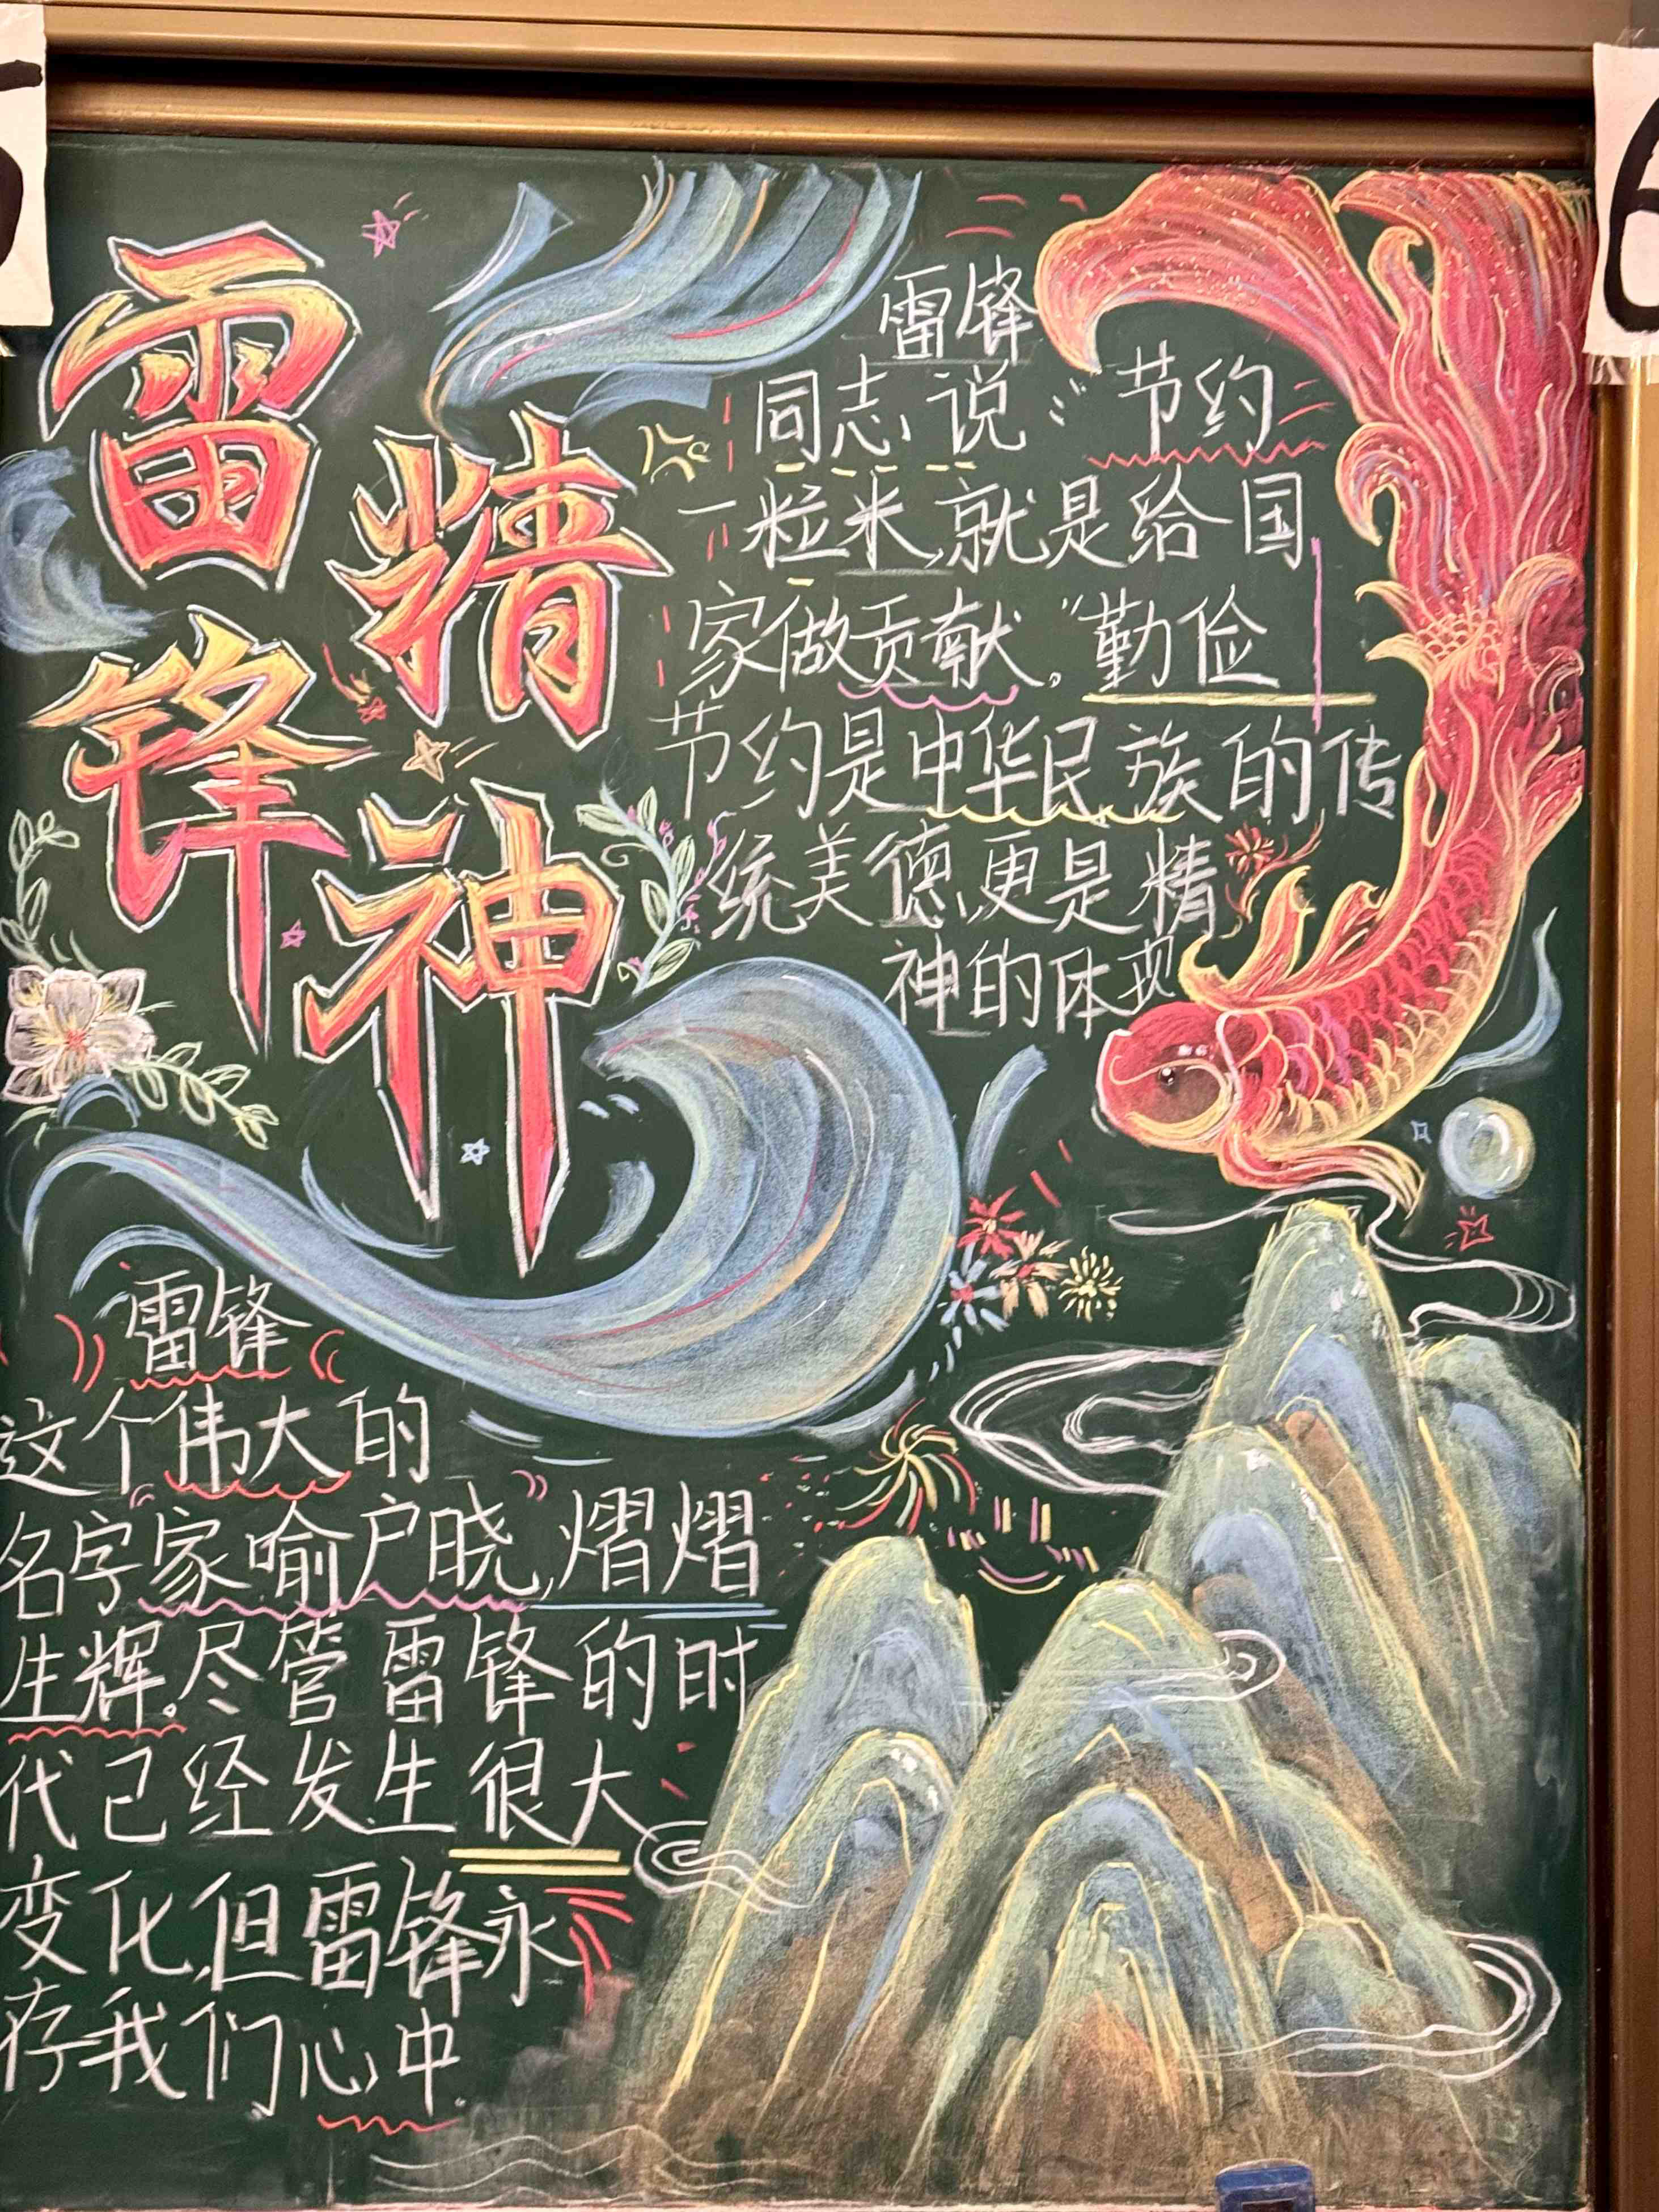 雷锋
精神
雷锋
同志说:“节约
一粒米,就是给国
家做贡献。”勤俭
节约是中华民族的传
统美德,更是精
神的体现
雷锋
这个伟大的
名字家喻户晓,熠熠
生辉。尽管雷锋的时
代已经发生很大
变化,但雷锋永
存我们心中。
5
6